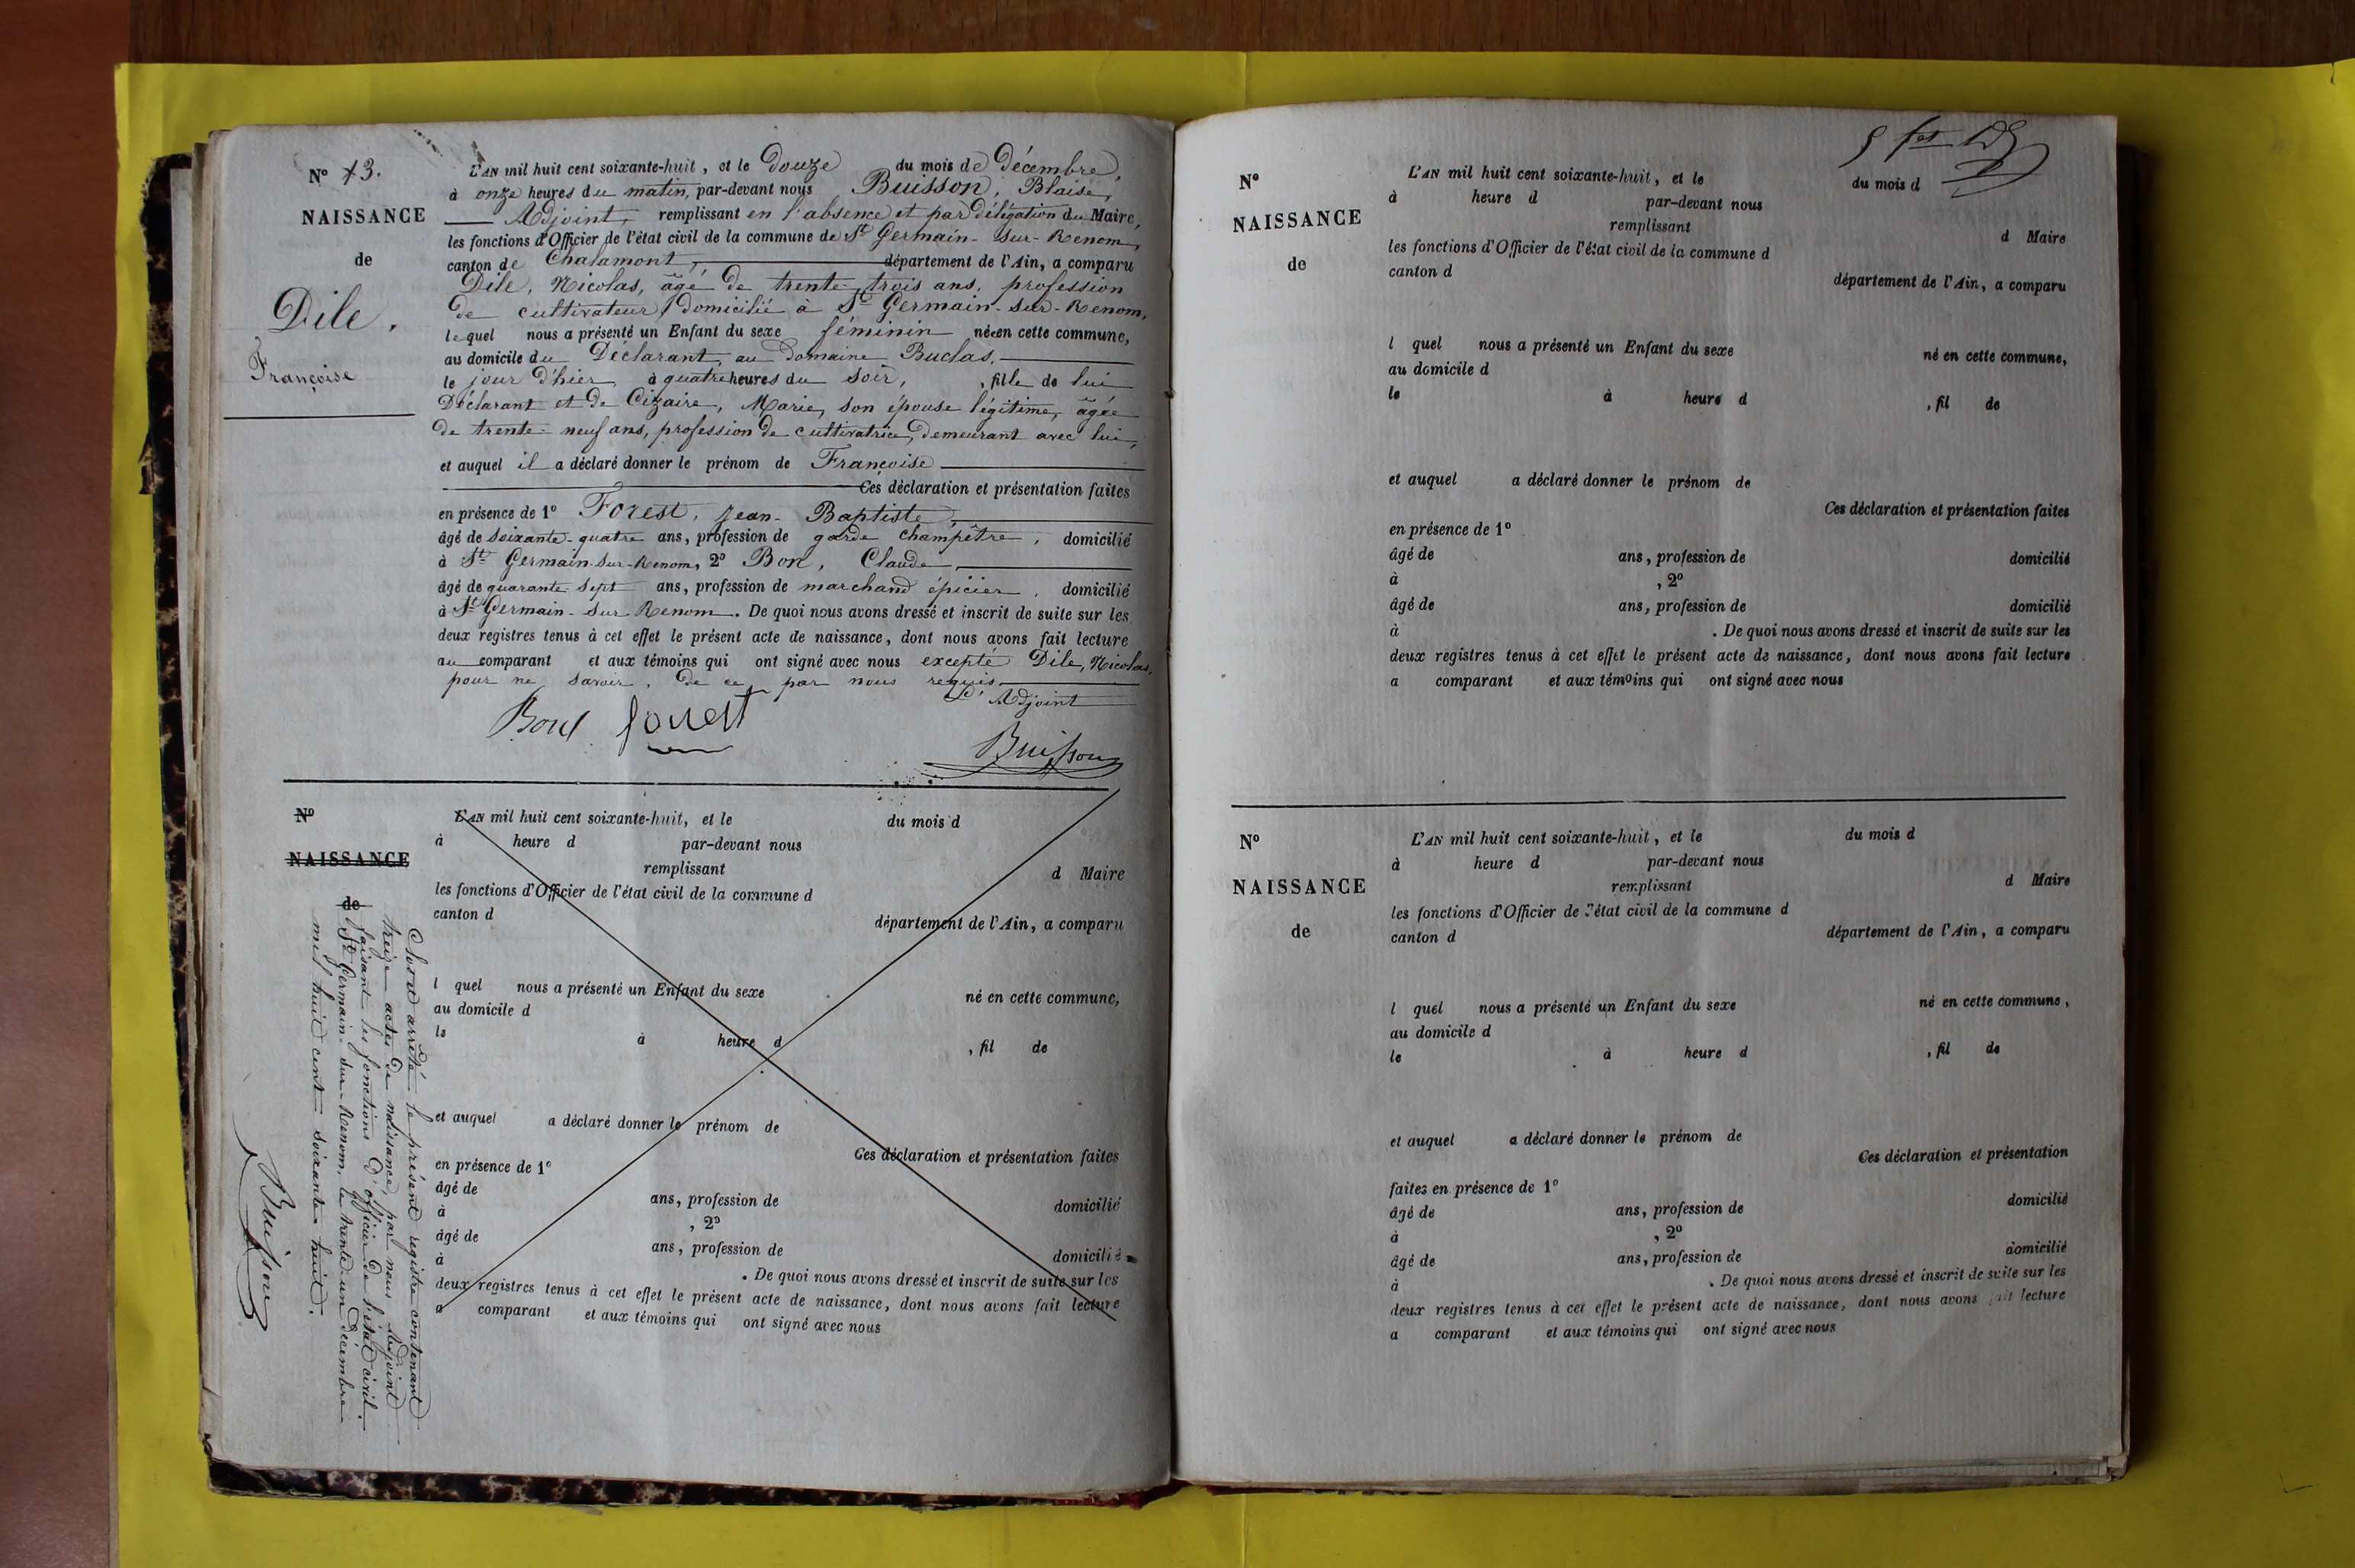 N° 13.
NAISSANCE
de
Dile,
Françoise
L'AN mil huit cent soixante-huit, et le Douze du mois de Décembre,
à onze heures du matin, par-devant nous Buisson, Blaise,
Adjoint, remplissant en l'absence et par délégation du Maire,
les fonctions d'Officier de l'état civil de la commune de St Germain-sur-Renom,
canton de Chalamont, département de l'Ain, a comparu
Dile, Nicolas, âgé de trente-trois ans, profession
de cultivateur, domicilié à St Germain-sur-Renom,
lequel nous a présenté un Enfant du sexe féminin né en cette commune,
au domicile du Déclarant, au Domaine Buclas,
le jour d'hier à quatre heures du soir, , fille de lui
Déclarant et de Cizaire, Marie, son épouse légitime, âgée
de trente-neuf ans, profession de cultivatrice, demeurant avec lui,
et auquel il a déclaré donner le prénom de Françoise
Ces déclaration et présentation faites
en présence de 1° Forest, Jean-Baptiste,
âgé de soixante-quatre ans, profession de garde champêtre, domicilié
à St Germain-sur-Renom, 2° Bon, Claude,
âgé de quarante-sept ans, profession de marchand épicier, domicilié
à St Germain-sur-Renom. De quoi nous avons dressé et inscrit de suite sur les
deux registres tenus à cet effet le présent acte de naissance, dont nous avons fait lecture
au comparant et aux témoins qui ont signé avec nous excepté Dile, Nicolas,
pour ne savoir, de ce par nous requis
L'Adjoint
Bon Forest
Buisson
N°
NAISSANCE
de
L'AN mil huit cent soixante-huit, et le du mois d
à heure d par-devant nous
remplissant d Maire
les fonctions d'Officier de l'état civil de la commune d
canton d département de l'Ain, a comparu
l quel nous a présenté un Enfant du sexe né en cette commune,
au domicile d
le à heure d , fil de
et auquel a déclaré donner le prénom de
Ces déclaration et présentation faites
en présence de 1°
âgé de ans, profession de domicilié
à , 2°
âgé de ans, profession de domicilié
à . De quoi nous avons dressé et inscrit de suite sur les
deux registres tenus à cet effet le présent acte de naissance, dont nous avons fait lecture
a comparant et aux témoins qui ont signé avec nous
Clos et arrêté le présent registre contenant
treize actes de naissance, par nous Adjoint
faisant les fonctions d'officier de l'état civil.
St Germain-sur-Renom, le trente-un décembre
mil huit cent soixante-huit.
Buisson
N°
NAISSANCE
de
L'AN mil huit cent soixante-huit, et le du mois d
à heure d par-devant nous
remplissant d Maire
les fonctions d'Officier de l'état civil de la commune d
canton d département de l'Ain, a comparu
l quel nous a présenté un Enfant du sexe né en cette commune,
au domicile d
le à heure d , fil de
et auquel a déclaré donner le prénom de
Ces déclaration et présentation faites
en présence de 1°
âgé de ans, profession de domicilié
à , 2°
âgé de ans, profession de domicilié
à . De quoi nous avons dressé et inscrit de suite sur les
deux registres tenus à cet effet le présent acte de naissance, dont nous avons fait lecture
a comparant et aux témoins qui ont signé avec nous
N°
NAISSANCE
de
L'AN mil huit cent soixante-huit, et le du mois d
à heure d par-devant nous
remplissant d Maire
les fonctions d'Officier de l'état civil de la commune d
canton d département de l'Ain, a comparu
l quel nous a présenté un Enfant du sexe né en cette commune,
au domicile d
le à heure d , fil de
et auquel a déclaré donner le prénom de
Ces déclaration et présentation
faites en présence de 1°
âgé de ans, profession de domicilié
à , 2°
âgé de ans, profession de domicilié
à . De quoi nous avons dressé et inscrit de suite sur les
deux registres tenus à cet effet le présent acte de naissance, dont nous avons fait lecture
a comparant et aux témoins qui ont signé avec nous